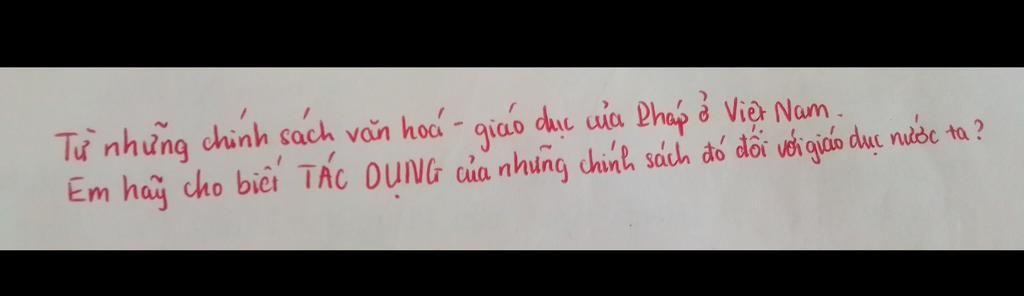 Từ những chính sách văn hoá - giáo dục của Pháp ở Việt Nam.
Em hãy cho biết TÁC DỤNG của những chính sách đó đối với giáo dục nước ta?